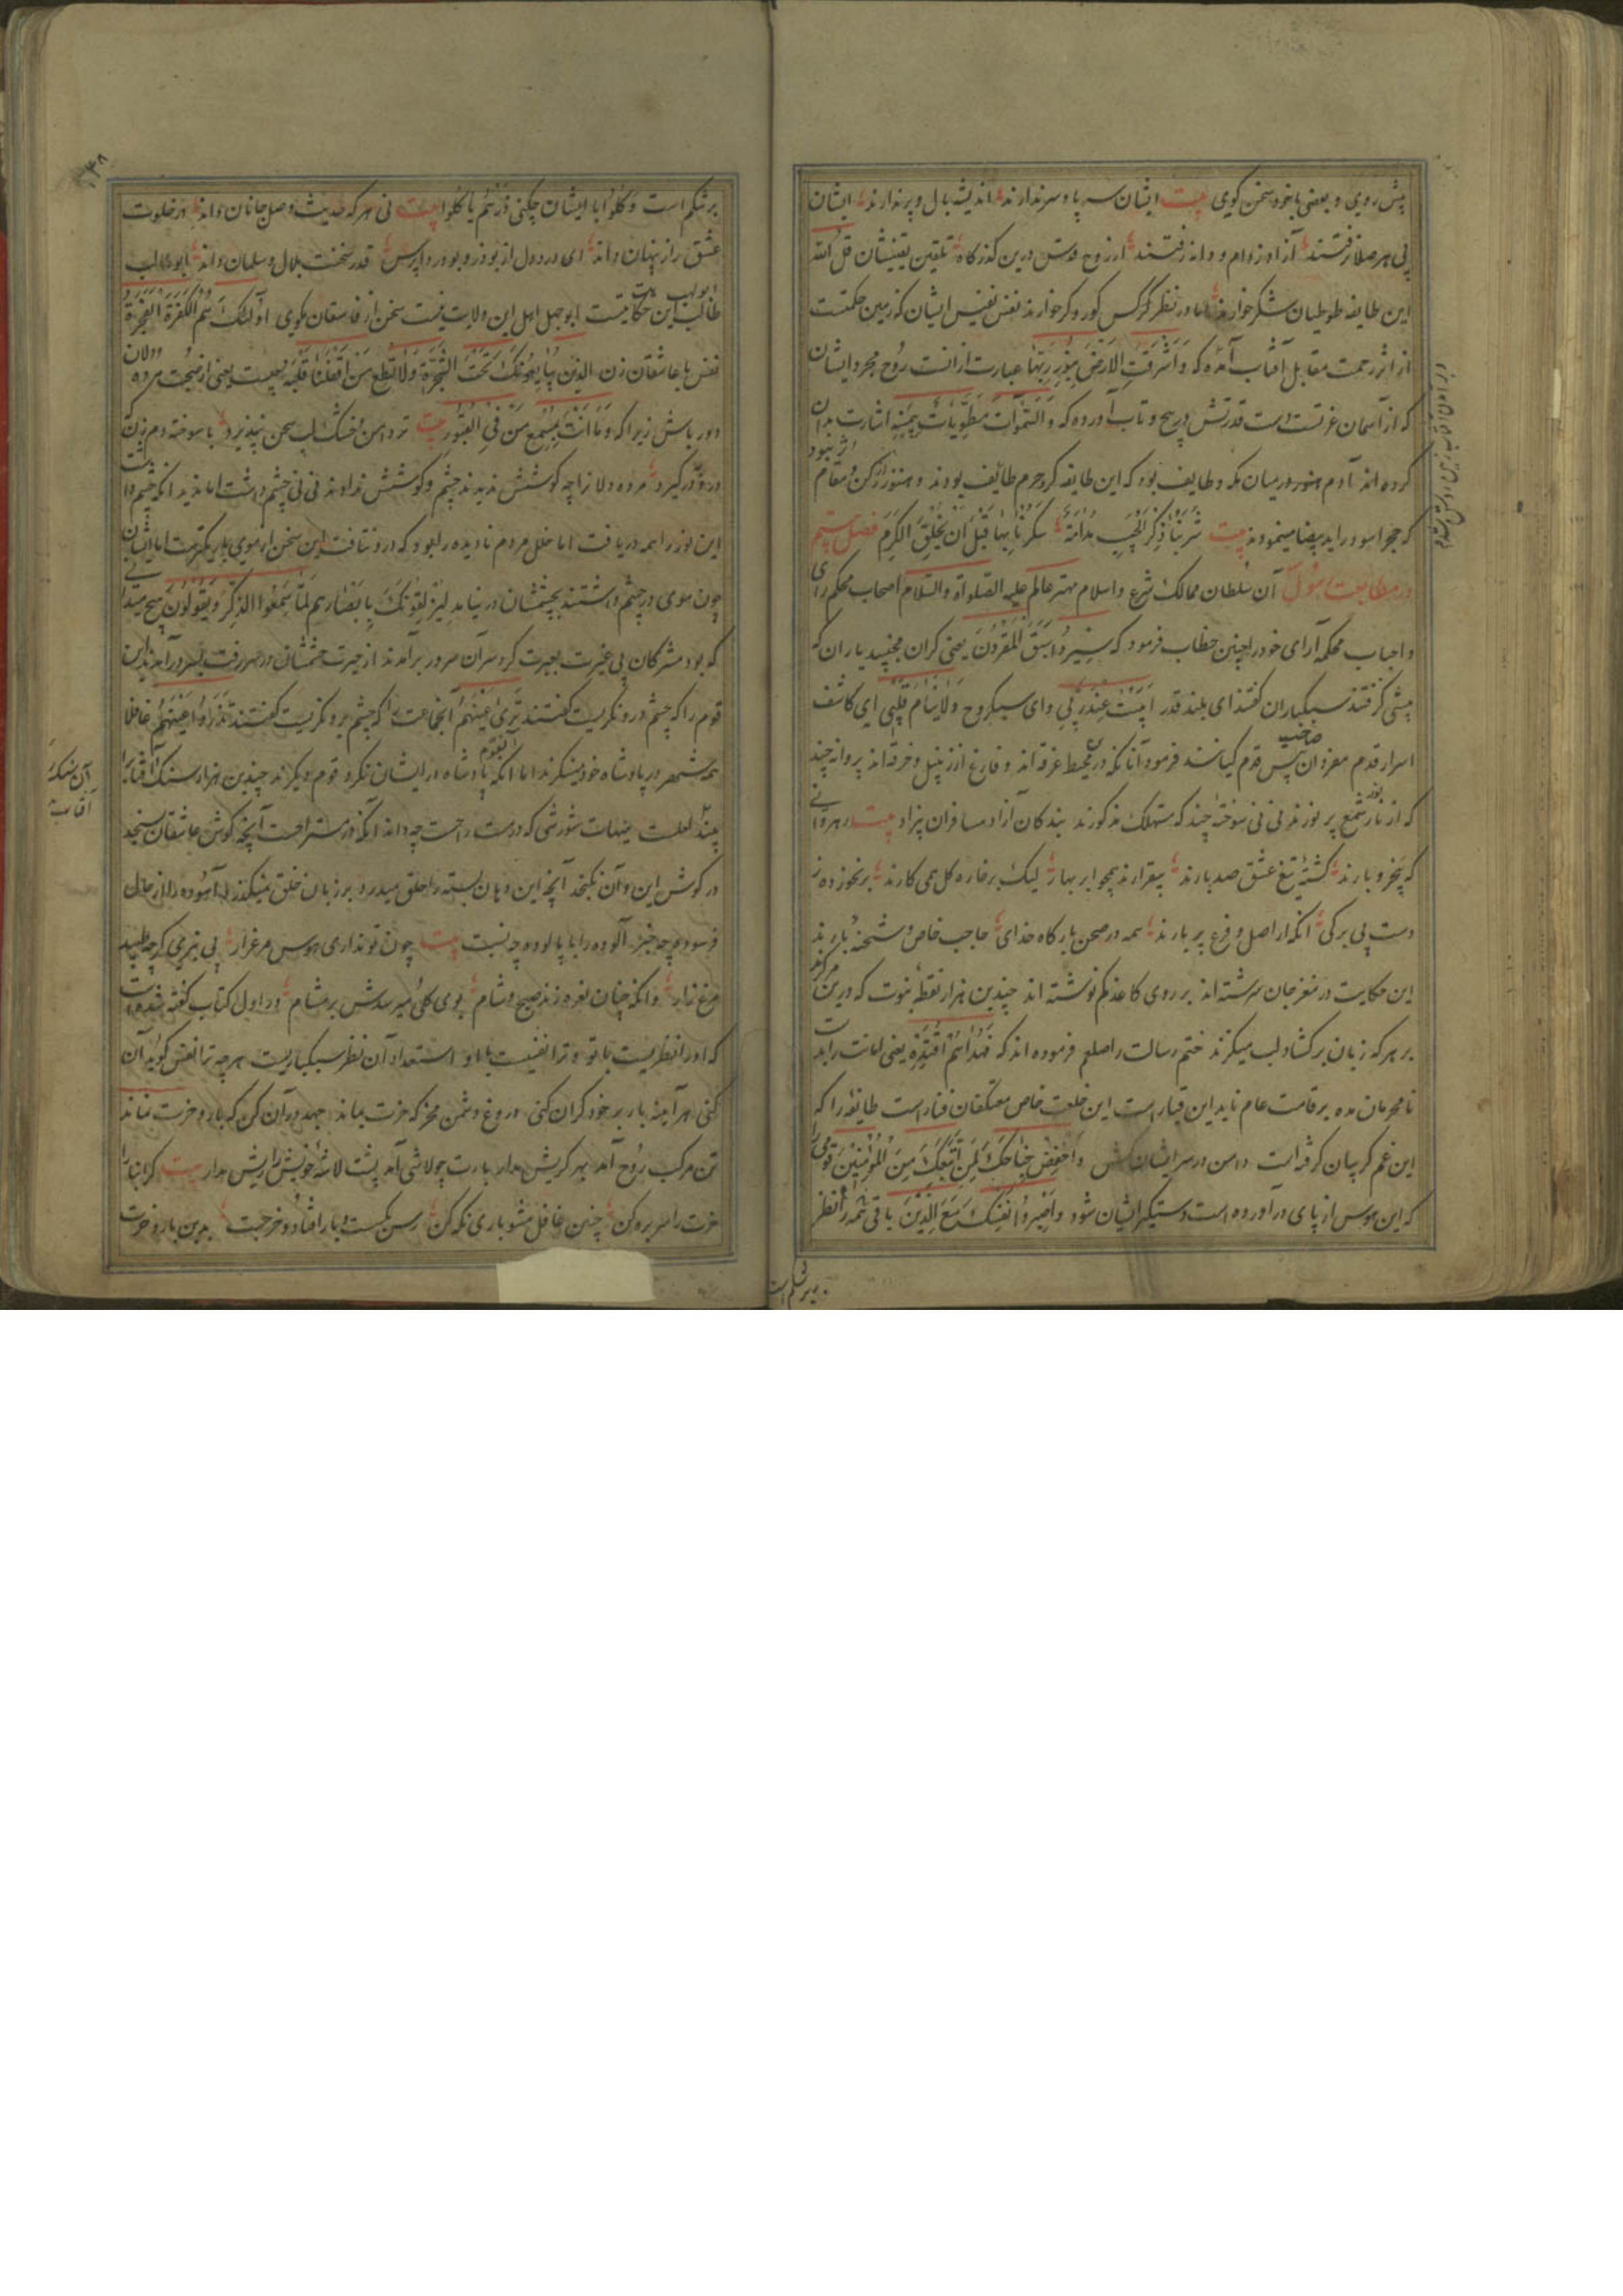 پیش روی و بعضی با خود سخن کوی بیت ایشان سر پا و سر ندارند اندیشه بال و پر ندارند ایشان
پی هر صلا نرفتند آزاد ز دام و دانه رفتند از روح قدس درین کذرکاه تلقین یقینشان قل الله
این طایفه طوطیان شکر خوارند اما در نظر کرکس کور و کر خوارند نفس نفیس ایشان کوزه بین حکمتست
از اثر رحمت مقابل آفتاب آمده که وَاَشْرَقَتِ الْاَرْضُ بِنُورِ رَبِّهَا عبارت از انست روح مجرد ایشان
که از آسمان عزتست دست قدرتش در پیچ و تاب آورده که وَالسَّمٰوَاتُ مَطْوِیَّاتٌ بِیَمِیْنِهِ اشارت بدان
کرده اند آدم هنوز در میان مکه و طایف بود که این طایفه کرد حرم طائف بودند و هنوز از رکن و مقام اثر نبود
که حجر اسود را ید بیضا مینمودند بیت شَرِبْنَا ذِکْرَ الْحَبِیْبِ مُدَامَةً سَکَرْنَا بِهَا قَبْلَ اَنْ یُخْلَقَ الْکَرَمُ فصل بیستم
در مطابعت رسول آن سلطان ممالک شرع و اسلام مهتر عالم علیه الصلواة والسلام اصحاب محکم رای
و احباب محکمه آرای خود را چنین خطاب فرمود که سِیْرُوا سَبَقَ الْمُفَرِّدُوْنَ یعنی کران مخسپید یاران که
پیشی کرفتند سبکباران کفتند ای بلند قدر اَبِیْتُ عِنْدَ رَبِّی وای سبکروح وَلَا یَنَامُ قَلْبِی ای کاشف
اسرار قدم مفردان صاحب پس قدم کیانند فرمود آنانکه در محیط غرقه اند و فارغ از زنبیل و خرقه اند پروانه چند
که از نار شمع پر نورند نی نی سوخته چند که مستهلک مذکورند بندکان آزاد مسافران بیزاد بیت رهروانی
که بیخر و بارند کشته تیغ عشق صد بارند بیقرارند همچو ابر بهار لیک بر خاره کل همی کارند بر نخورده ز
دست بی برکی انکه از اصل و فرع پر بارند همه در صحن بارکاه خدای حاجب خاص و شحنه بارند
این حکایت در مغز جان سرشته اند بر روی کاغذ کم نوشته اند چندین هزار نقطه نبوت که درین مرکزند
بر هر که زبان برکشاد لب میکزند ختم رسالت را صلعم فرموده اند که فَبِهُدَاهُمُ اقْتَدِهْ یعنی امانت را به
نامحرمان مده بر قامت عام ناید این قبا راست این خلعت خاص معتکفان فناراست طایفه را که
این غم کریبان کرفته است دامن در سر ایشان کش وَاخْفِضْ جَنَاحَکَ لِمَنِ اتَّبَعَکَ مِنَ الْمُؤْمِنِیْنَ قومی را
که این هوس از پای درآورده است دستکیر ایشان شو وَاصْبِرْ نَفْسَکَ مَعَ الَّذِیْنَ باقی همه را نظر
بر شکم است
بر شکم است و کلوا با ایشان چکنی ذَرْهُمْ یَأْکُلُوا بیت نی هر که حدیث وصل جانان داند در خلوت
عشق راز پنهان داند ای درد دل از بوذر و بودردا پرس قدر سخنت بلال و سلمان داند ابو طالب
طالب این حکایت نیست ابوجهل اهل این ولایت نیست سخن از فاسقان مکوی اُولٰئِکَ هُمُ الْکَفَرَةُ الْفَجَرَةُ و
نفس با عاشقان زن الذین یُبَایِعُوْنَکَ تَحْتَ الشَّجَرَةِ وَلَا تُطِعْ مَنْ اَغْفَلْنَا قَلْبَهُ یعنی از صحبت مرده دلان
دور باش زیرا که وَمَا اَنْتَ بِمُسْمِعٍ مَنْ فِی الْقُبُوْرِ بیت تر دامن خشک لب سخن نپذیرد با سوخته دم زن
که درو درکیرد مرده دلانرا چه کوششش ندیدند چشم و کوششش ندادند نی نی چشم داشت اما ندید انکه چشم داشت
این نور را همه دریافت اما خلل مردم نادیده را بود که درو نتافت این سخن از موی باریکترست اما ایشان
چون موی در چشم داشتند بچشمشان در نیامد لَیُزْلِقُوْنَکَ بِاَبْصَارِهِمْ لَمَّا سَمِعُوا الذِّکْرَ وَیَقُوْلُوْنَ هیچ میدانی
که بود مشرکان بی غیرت بعبرت کرد سر آن سرور برآمدند از حیرت چشمشان در سر رفت بسر درآمدند این
قوم را که چشم در و نکریست کفتند تَرٰی اَعْیُنَهُمْ انجماعت را که چشم برو نکریست کفتند تَزْدَرِی اَعْیُنُهُمْ غافلا
همه شهر در پادشاه خود مینکرند اما انکه پادشاه در ایشان نکرد قوم دیکرند چندین هزار سنک آفتاب را
بیند لعلست هیهات شورشی که درست راحت چه داند انکه در ستراحت آنچه کوش عاشقان سنجد
در کوش این و آن نکنجد آنچه این دهان بسته را حلق میدرد بر زبان خلق میکذرد آسوده را از حال
فرسوده چه خبر آلوده را با پالوده چه نسبت بیت چون تو نداری هوس مرغزار پی نبری کر چه طلبید
مرغ زار وانکه چنان نعره زند صبح و شام بوی کلی میرسدش بر مشام در اول کتاب کفته شده است
که او را نظریست با تو و ترا نفسیست با او استعداد آن نظر سبکباریست هر چه ترا نفس کوید آن
کنی هر آینه بار بر خود کران کنی دروغ دشمن مخر که خرت بماند جهد در آن کن که بار و خرت نماند
تن مرکب روح آمد بهر کریش مدار بارت چولاشی آمد پشت لاشه خویش را ریش مدار بیت کرانبارا
خرت را سر بره کن چنین غافل مشو باری نکه کن رسن بکسست و بار افتاد و خر جست بدین بار و خرت
آن سنک
آفتاب